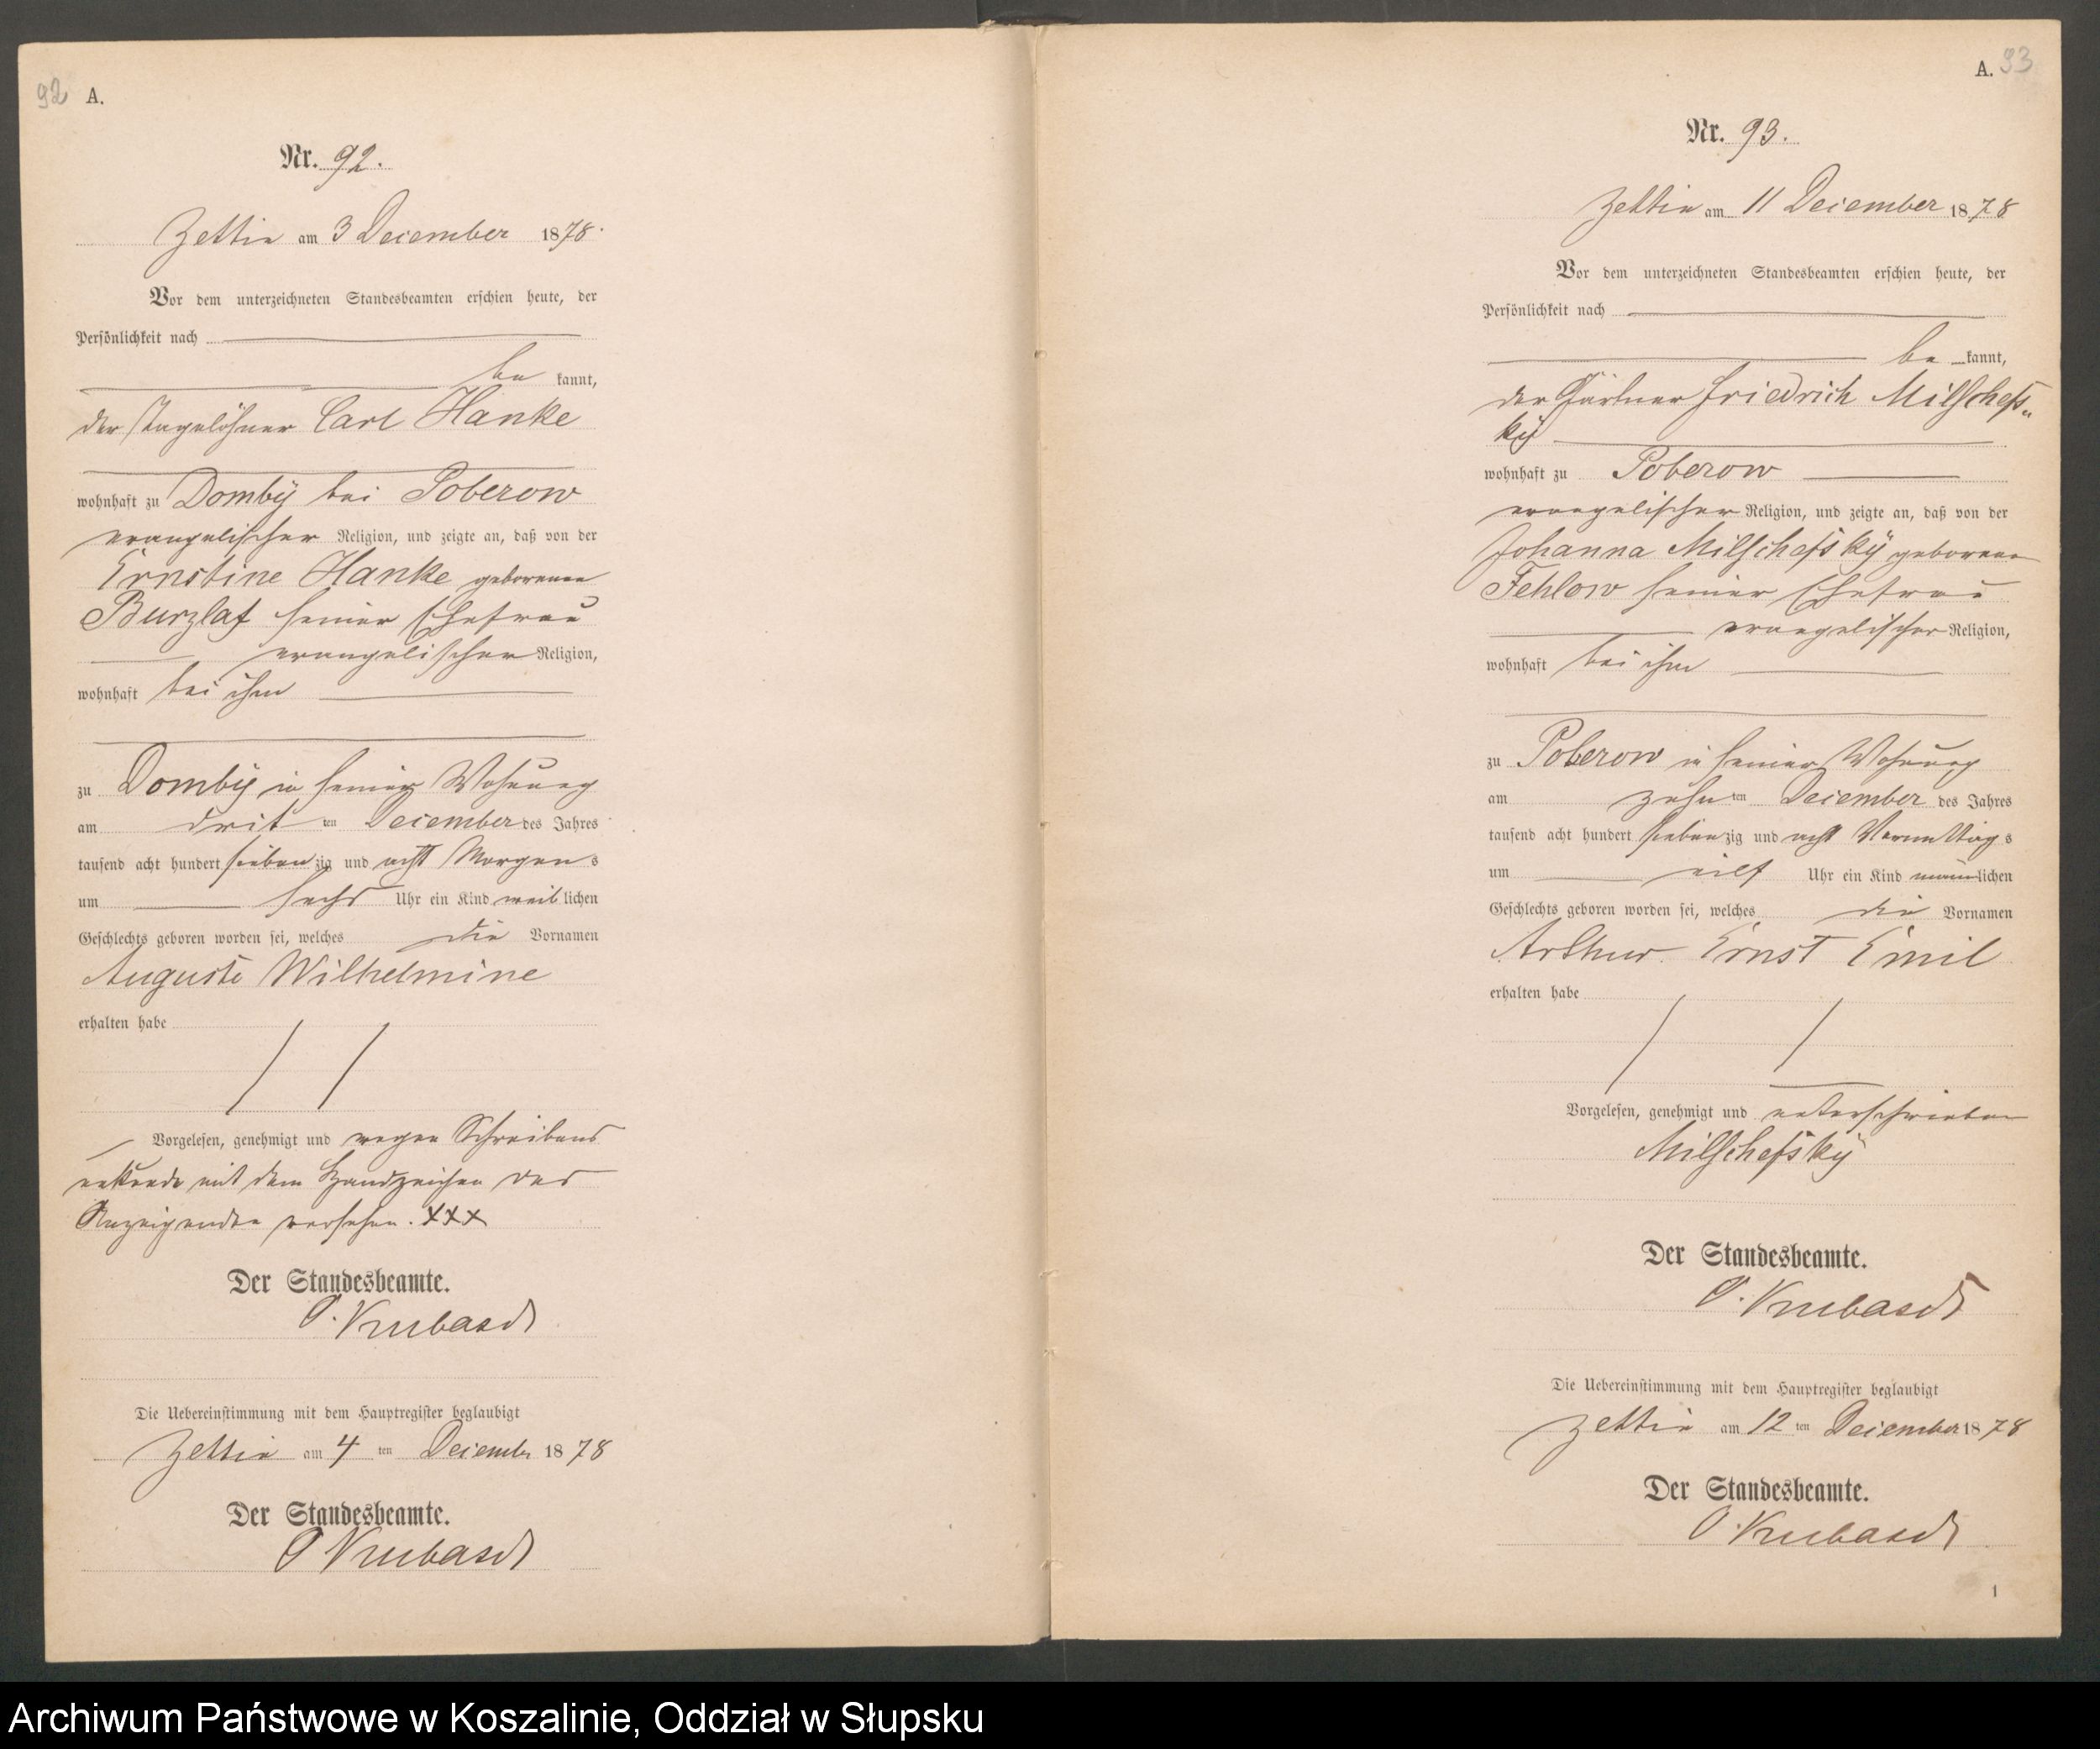 92 A.
Nr. 92.
Zettin am 3 December 1878.
Vor dem unterzeichneten Standesbeamten erschien heute, der
Persönlichkeit nach
be kannt,
der Tagelöhner Carl Hanke
wohnhaft zu Dombÿ bei Poberow
evangelischer Religion, und zeigte an, daß von der
Ernstine Hanke geborenen
Burzlaf seiner Ehefrau
evangelischer Religion,
wohnhaft bei ihm
zu Dombÿ in seiner Wohnung
am drit ten December des Jahres
tausend acht hundert sieben zig und acht Morgens
um sechs Uhr ein Kind weiblichen
Geschlechts geboren worden sei, welches die Vornamen
Auguste Wilhelmine
erhalten habe
Vorgelesen, genehmigt und wegen Schreibens
unkunde mit dem Handzeichen des
Anzeigenden versehen. XXX
Der Standesbeamte.
Die Uebereinstimmung mit dem Hauptregister beglaubigt
Zettin am 4 ten December 1878
Der Standesbeamte.
A. 93
Nr. 93.
Zettin am 11 December 1878
Vor dem unterzeichneten Standesbeamten erschien heute, der
Persönlichkeit nach
be kannt,
der Gärtner Friedrich Milschefs-
kÿ
wohnhaft zu Poberow
evangelischer Religion, und zeigte an, daß von der
Johanna Milschefskÿ geborenen
Fehlow seiner Ehefrau
evangelischer Religion,
wohnhaft bei ihm
zu Poberow in seiner Wohnung
am zehn ten December des Jahres
tausend acht hundert siebenzig und acht Vormittags
um eilf Uhr ein Kind männlichen
Geschlechts geboren worden sei, welches die Vornamen
Arthur Ernst Emil
erhalten habe
Vorgelesen, genehmigt und unterschrieben
Milschefskÿ
Der Standesbeamte.
Die Uebereinstimmung mit dem Hauptregister beglaubigt
Zettin am 12 ten December 1878
Der Standesbeamte.
1
Archiwum Państwowe w Koszalinie, Oddział w Słupsku